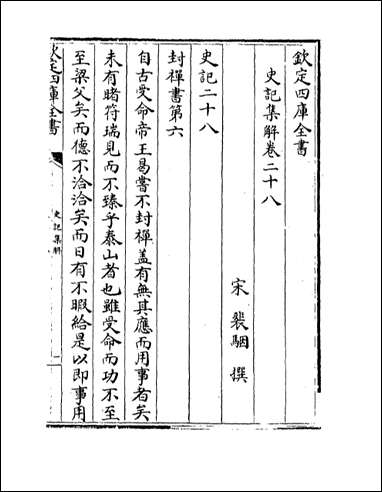 欽定四庫全書
史記集解卷二十八
宋 裴駰 撰
史記二十八
封禪書第六
自古受命帝王曷嘗不封禪蓋有無其應而用事者矣
未有睹符瑞見而不臻乎泰山者也雖受命而功不至
至梁父矣而德不洽洽矣而日有不暇給是以即事用
欽定四庫全書
史記集解
一